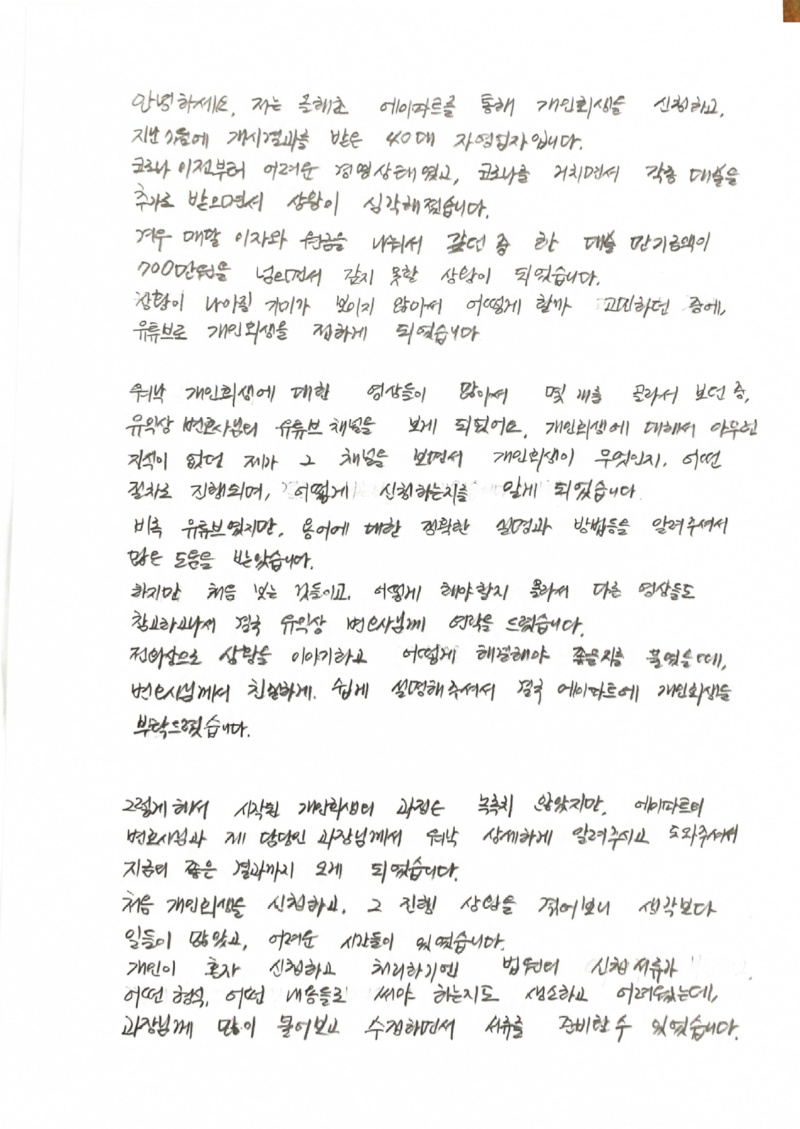 안녕하세요, 저는 올해초 에이파트를 통해 개인회생을 신청하고,
지난 가을에 개시결과를 받은 40대 자영업자입니다.
코로나 이전부터 어려운 경영상태였고, 코로나를 거치면서 각종 대출을
추가로 받으면서 상황이 심각해졌습니다.
겨우 매달 이자와 원금을 나눠서 갚던 중 한 대출 만기금액이
700만원을 넘으면서 갚지 못할 상황이 되었습니다.
상황이 나아질 기미가 보이지 않아서 어떻게 할까 고민하던 중에,
유튜브로 개인회생을 접하게 되었습니다

워낙 개인회생에 대한 영상들이 많아서 몇 개를 골라서 보던 중,
유익상 변호사님의 유튜브 채널을 보게 되었어요, 개인회생에 대해서 아무런
지식이 없던 제가 그 채널을 보면서 개인회생이 무엇인지, 어떤
절차로 진행되며, 어떻게 신청하는지를 알게 되었습니다
비록 유튜브였지만, 용어에 대한 정확한 설명과 방법등을 알려주셔서
많은 도움을 받았습니다.
하지만 처음 보는 것들이고, 어떻게 해야할지 몰라서 다른 영상들도
참고하고나서 결국 유익상 변호사님께 연락을 드렸습니다.
전화상으로 상황을 이야기하고 어떻게 해결해야 좋을지를 물었을때,
변호사님께서 친절하게, 쉽게 설명해주셔서 결국 에이파트에 개인회생을
부탁드렸습니다.

그렇게 해서 시작된 개인회생의 과정은 녹록치 않았지만, 에이파트의
변호사님과 제 담당인 과장님께서 워낙 상세하게 알려주시고 도와주셔서
지금의 좋은 결과까지 오게 되었습니다.
처음 개인회생을 신청하고, 그 진행 상황을 겪어보니 생각보다
일들이 많았고, 어려운 시간들이 있었습니다.
개인이 혼자 신청하고 처리하기엔 법원의 신청서류가
어떤 형식, 어떤 내용들로 써야 하는지도 생소하고 어려웠는데,
과장님께 많이 물어보고 수정하면서 서류를 준비할수 있었습니다.